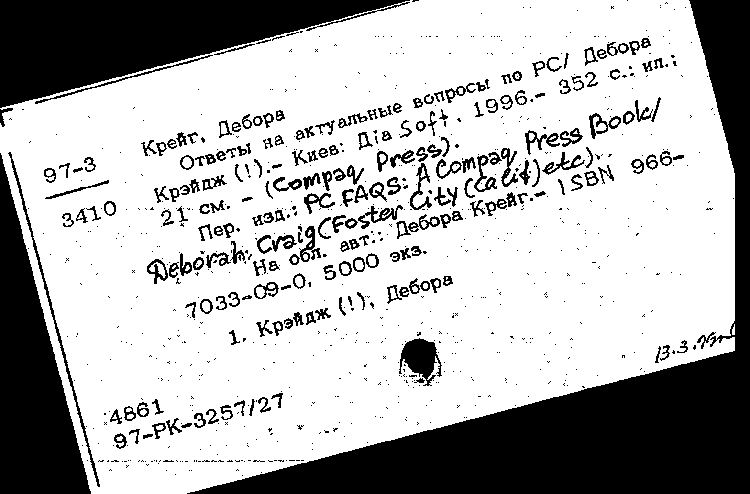 Крейг, Дебора
97-3
3410
Ответы на актуальные вопросы по PC/ Дебора
Крэйдж (!).- Киев: Диа Soft, 1996.- 352 с.: ил.;
21 см. - (Compaq Press).
Пер. изд.: PC FAQS: A Compaq Press Book/
Deborah Craig (Foster City (Calif) etc).
На обл. авт.: Дебора Крейг.- ISBN 966-
7033-09-0, 5000 экз.
1. Крэйдж (!), Дебора
4861
97-РК-3257/27